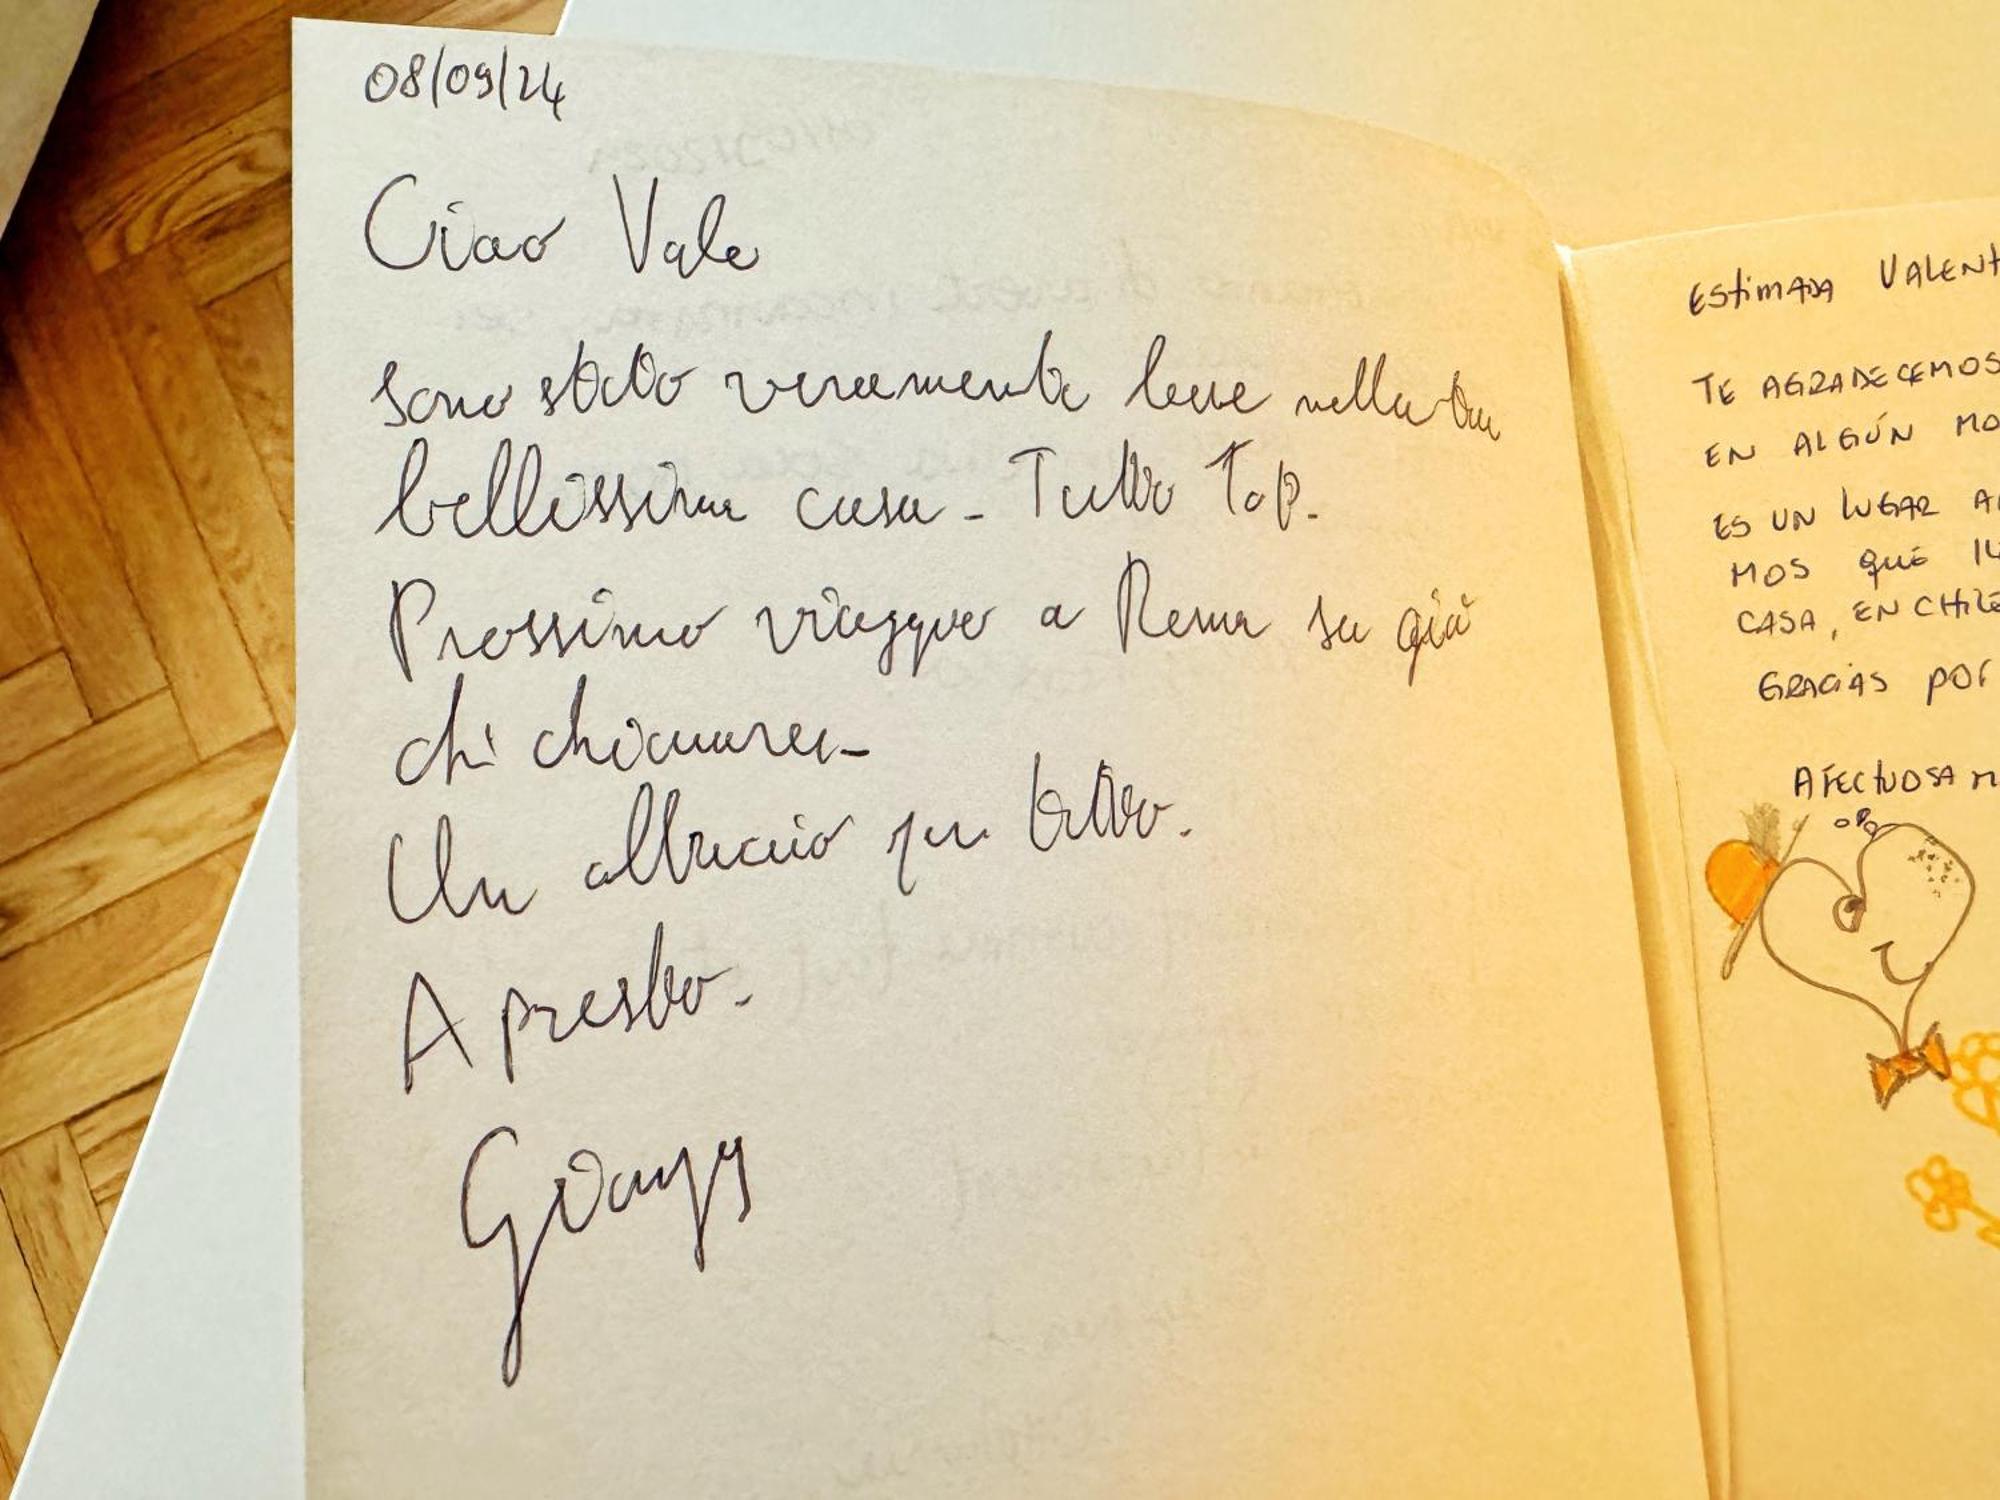 08/09/24
Ciao Vale
sono stato veramente bene nella tua
bellissima casa - Tutto Top.
Prossimo viaggio a Roma so già
chi chiamare -
Un abbraccio per tutto.
A presto.
EStimADA VALENt
TE AGRADECEMOS
EN ALGÚN MO
ES UN LUGAR A
MOS QUE
CASA, EN CHILE
GRACIAS POR
AFECTUOSAM